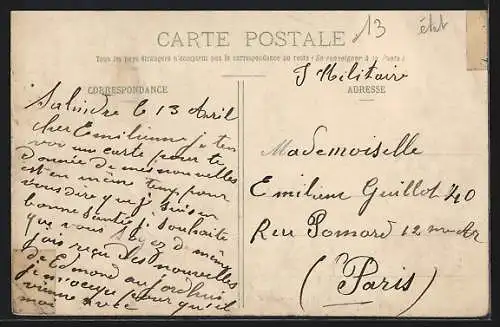 13
état
CARTE POSTALE
Tous les pays étrangers n'acceptent pas la correspondance au recto (Se renseigner à la Poste)
F Militaire
CORRESPONDANCE
ADRESSE
Salindre le 13 Avril
cher Emilienne je ten
voi un carte pour te
donnée de mes nouvelles
est en même temp pour
vous dire que je suis en
bonne santé je souhaite
que vous soyez de même
jais reçu des nouvelles
de Edmond aujordhui
je m'ocupe pour qu'il
vienne avec
moi
Mademoiselle
Emilienne Guillot 40
Reu Pomard 12 me Ar
(Paris)